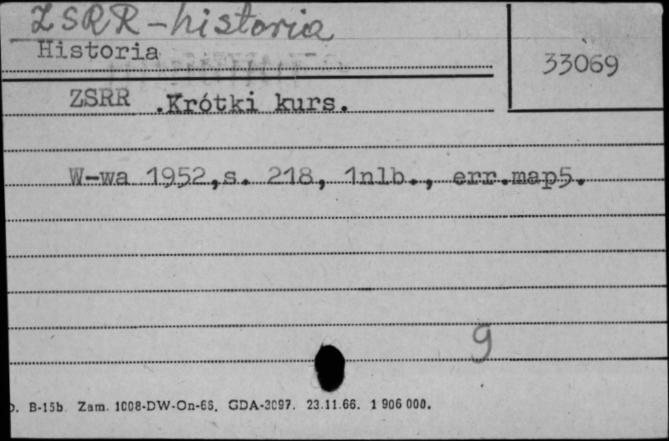 ZSRR - historia
Historia
33069
ZSRR .Krótki kurs.
W-wa 1952,s. 218, 1nlb., err.map5.
9
B-15b. Zam. 1008-DW-On-66. GDA-3097. 23.11.66. 1 906 000.